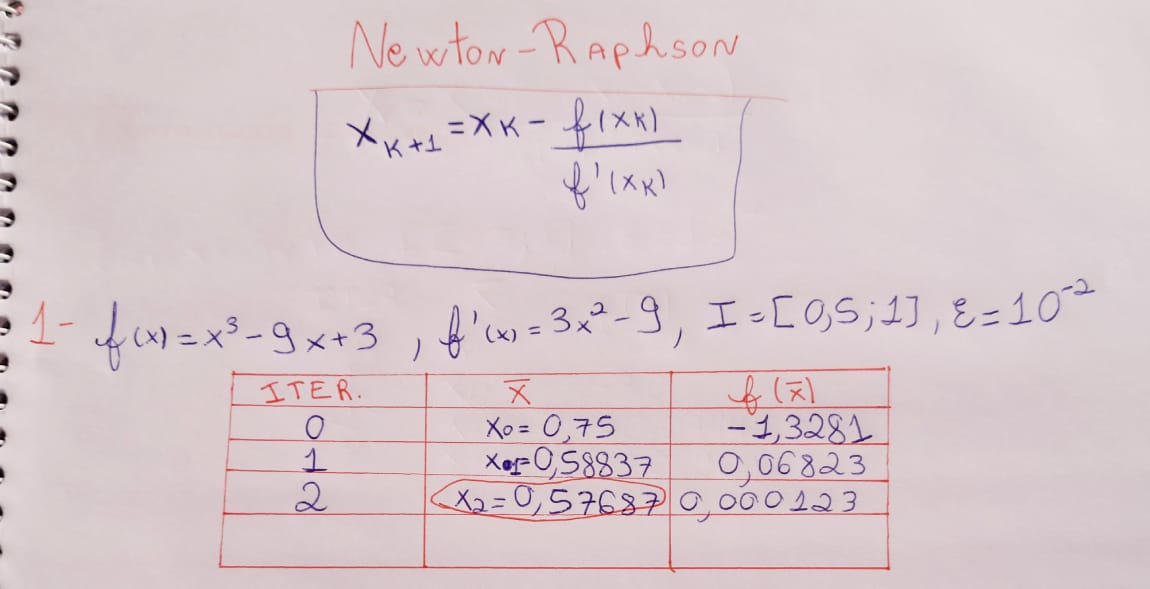 Newton-Raphson
x_{K+1} = x_K - f(x_K) / f'(x_K)
1- f(x) = x³ - 9x + 3 , f'(x) = 3x² - 9, I = [0,5;1], ε = 10⁻²
ITER. x̄ f(x̄)
0 x₀ = 0,75 -1,3281
1 x₁ = 0,58837 0,06823
2 x₂ = 0,57687 0,000123